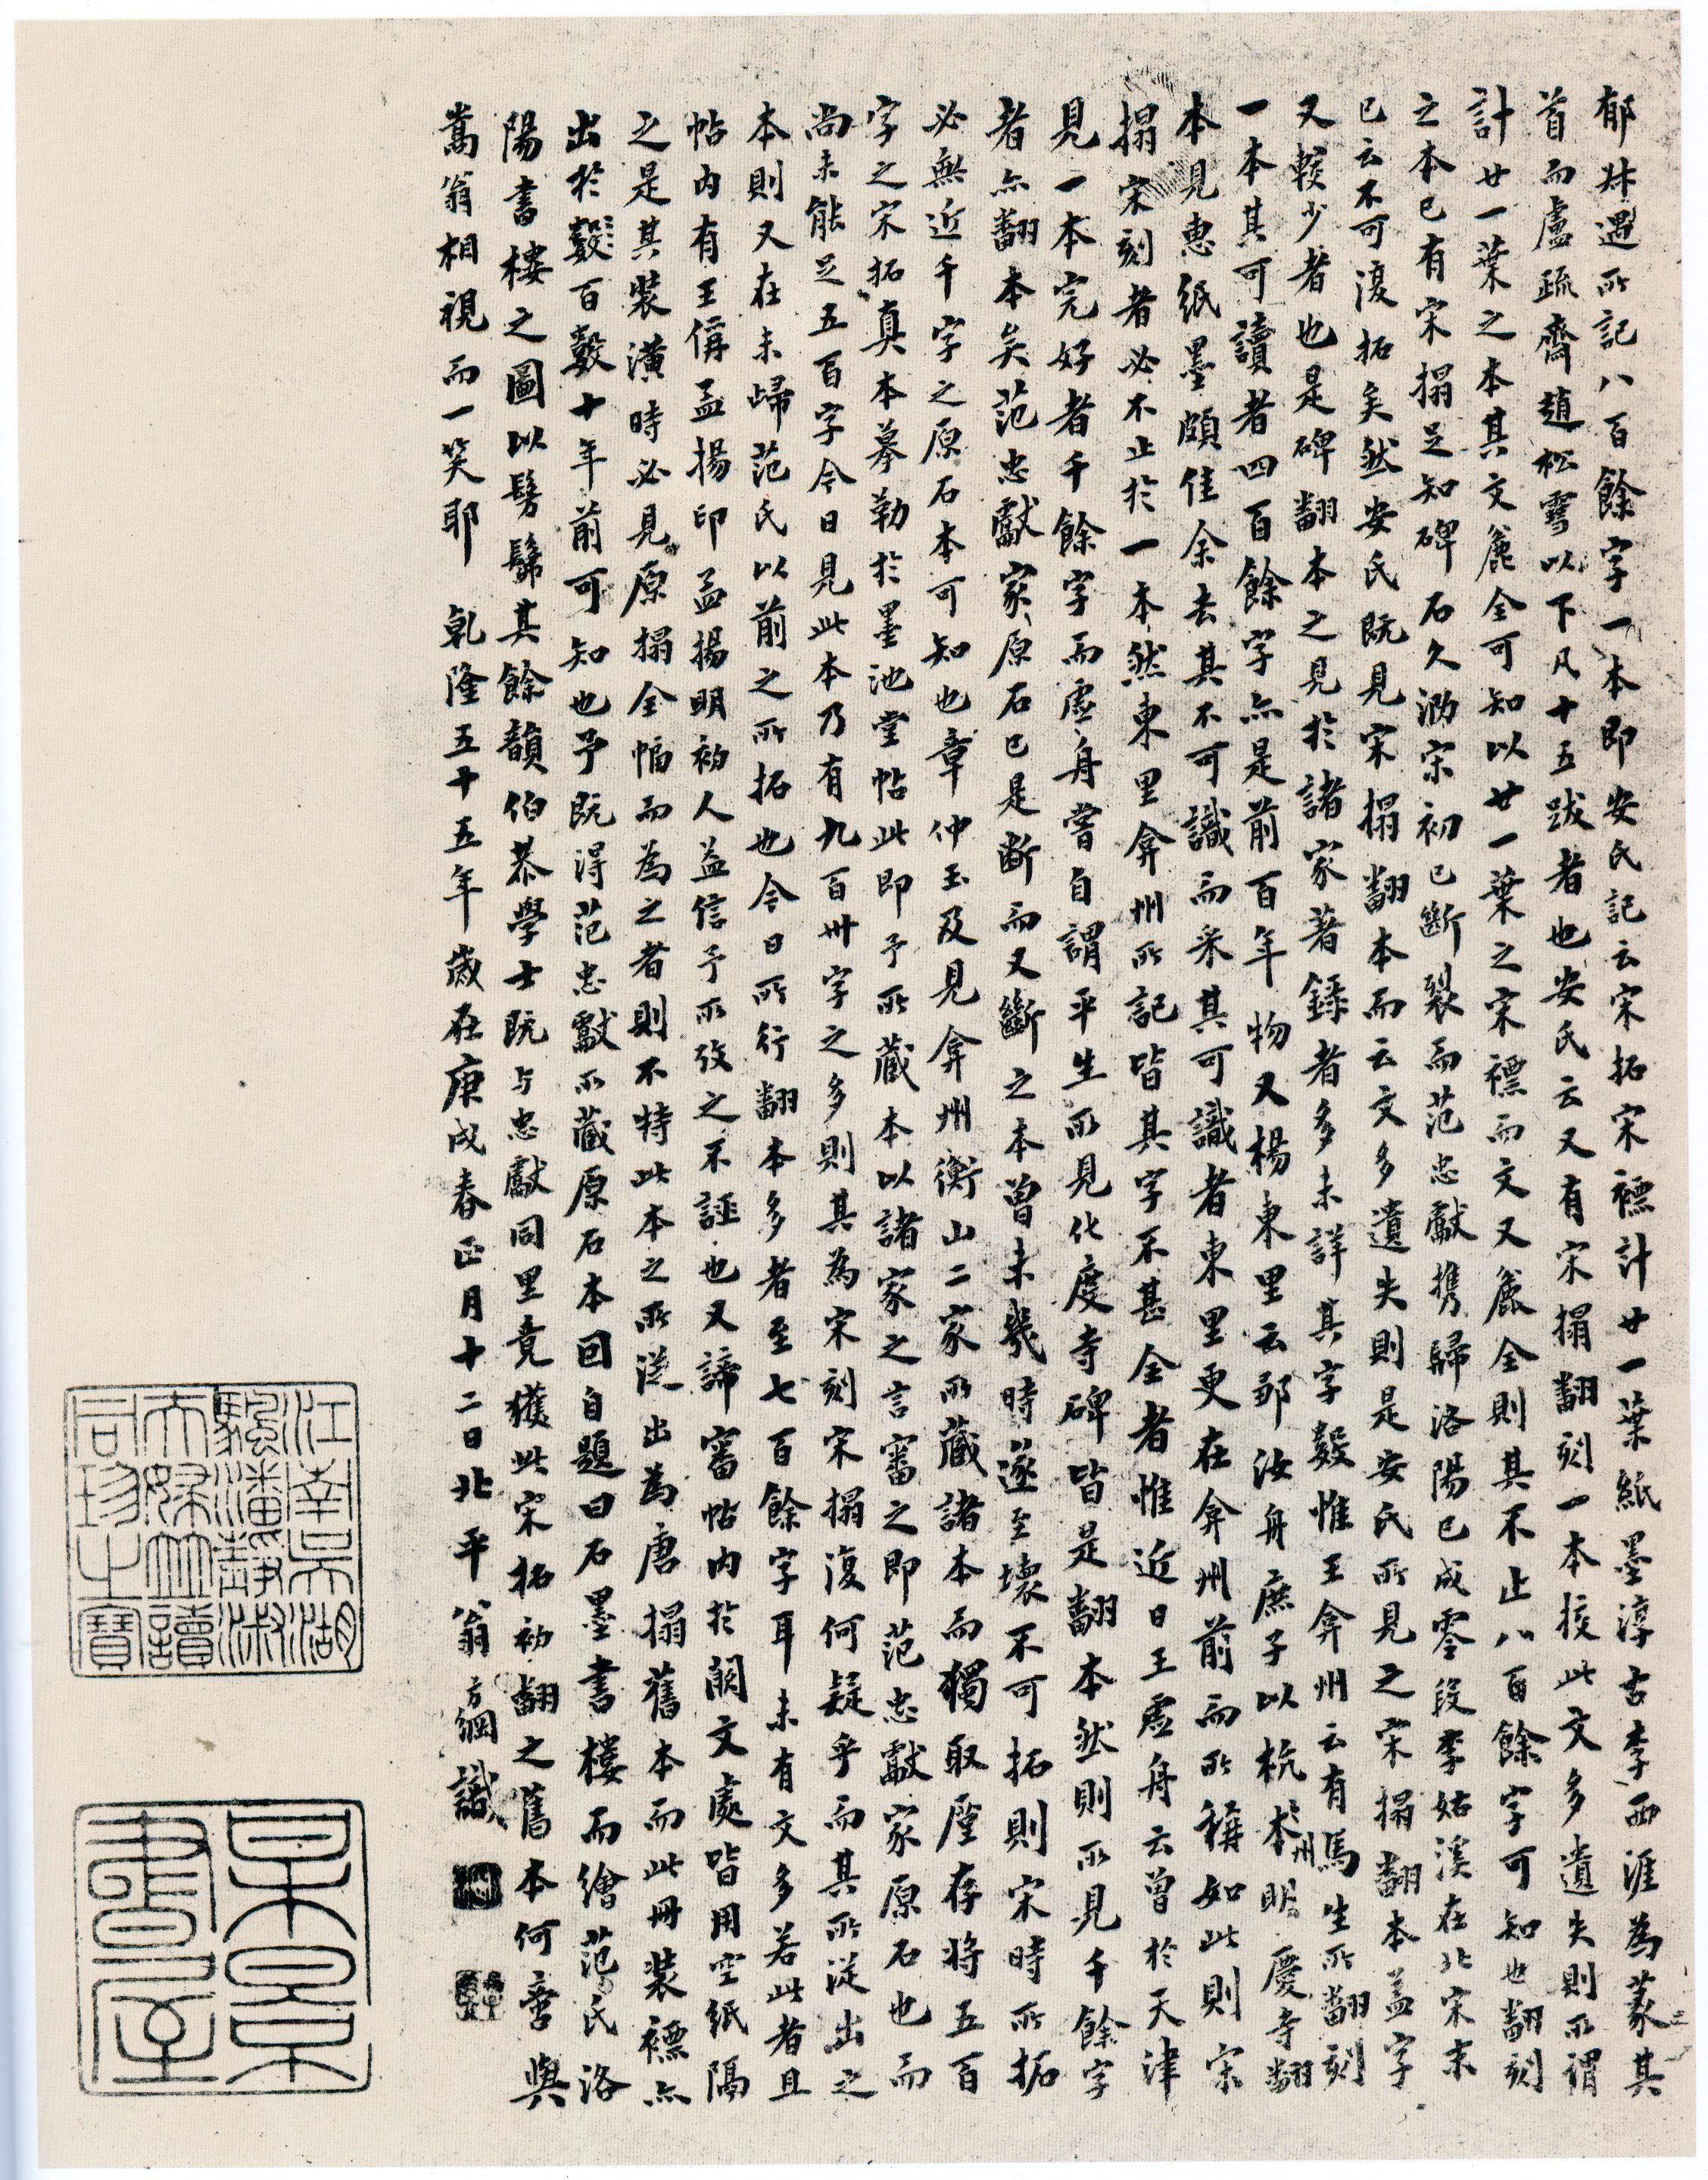 郁𠦑遇所記八百餘字一本即安氏記云宋拓宋褾計廿一葉紙墨淳古李西涯為篆其
首而盧疏齋趙松雪以下凡十五跋者也安氏云又有宋搨翻刻一本挍此文多遺失則所謂
計廿一葉之本其文麄全可知以廿一葉之宋褾而文又麄全則其不止八百餘字可知也翻刻
之本已有宋搨足知碑石久泐宋初已斷裂而范忠獻攜歸洛陽已成零段李姑溪在北宋末
已云不可復拓矣然安氏既見宋搨翻本而云文多遺失則是安氏所見之宋搨翻本盖字
又較少者也是碑翻本之見於諸家著錄者多未詳其字數惟王弇州云有馬生所翻刻
一本其可讀者四百餘字亦是前百年物又楊東里云鄒汝舟庶子以杭州本明慶寺翻
本見惠紙墨頗佳余去其不可識而采其可識者東里更在弇州前而所稱如此則宋
搨宋刻者必不止於一本然東里弇州所記皆其字不甚全者惟近日王虛舟云曾於天津
見一本完好者千餘字而虛舟嘗自謂平生所見化度寺碑皆是翻本然則所見千餘字
者亦翻本矣范忠獻家原石已是斷而又斷之本曾未幾時遂至壞不可拓則宋時所拓
必無近千字之原石本可知也章仲玉及見弇州衡山二家所藏諸本而獨取廑存將五百
字之宋拓真本摹勒於墨池堂帖此即予所藏本以諸家之言審之即范忠獻家原石也而
尚未能足五百字今日見此本乃有九百卅字之多則其為宋刻宋搨復何疑乎而其所從出之
本則又在未歸范氏以前之所拓也今日所行翻本多者至七百餘字耳未有文多若此者且
帖内有王偁孟揚印孟揚明初人益信予所攷之不誣也又諦審帖内於闕文處皆用空紙隔
之是其裝潢時必見原搨全幅而為之者則不特此本之所從出為唐搨舊本而此冊裝褾亦
出於數百數十年前可知也予既得范忠獻所藏原石本回自題曰石墨書樓而繪范氏洛
陽書樓之圖以髣髴其餘韻伯恭學士既与忠獻同里竟獲此宋拓初翻之舊本何啻與
嵩翁相視而一笑耶 乾隆五十五年歲在庚戌春正月十二日北平翁方綱識
江南吳湖
驪潘靜淑
夫婦並讀
同珍之寶
某景
書屋